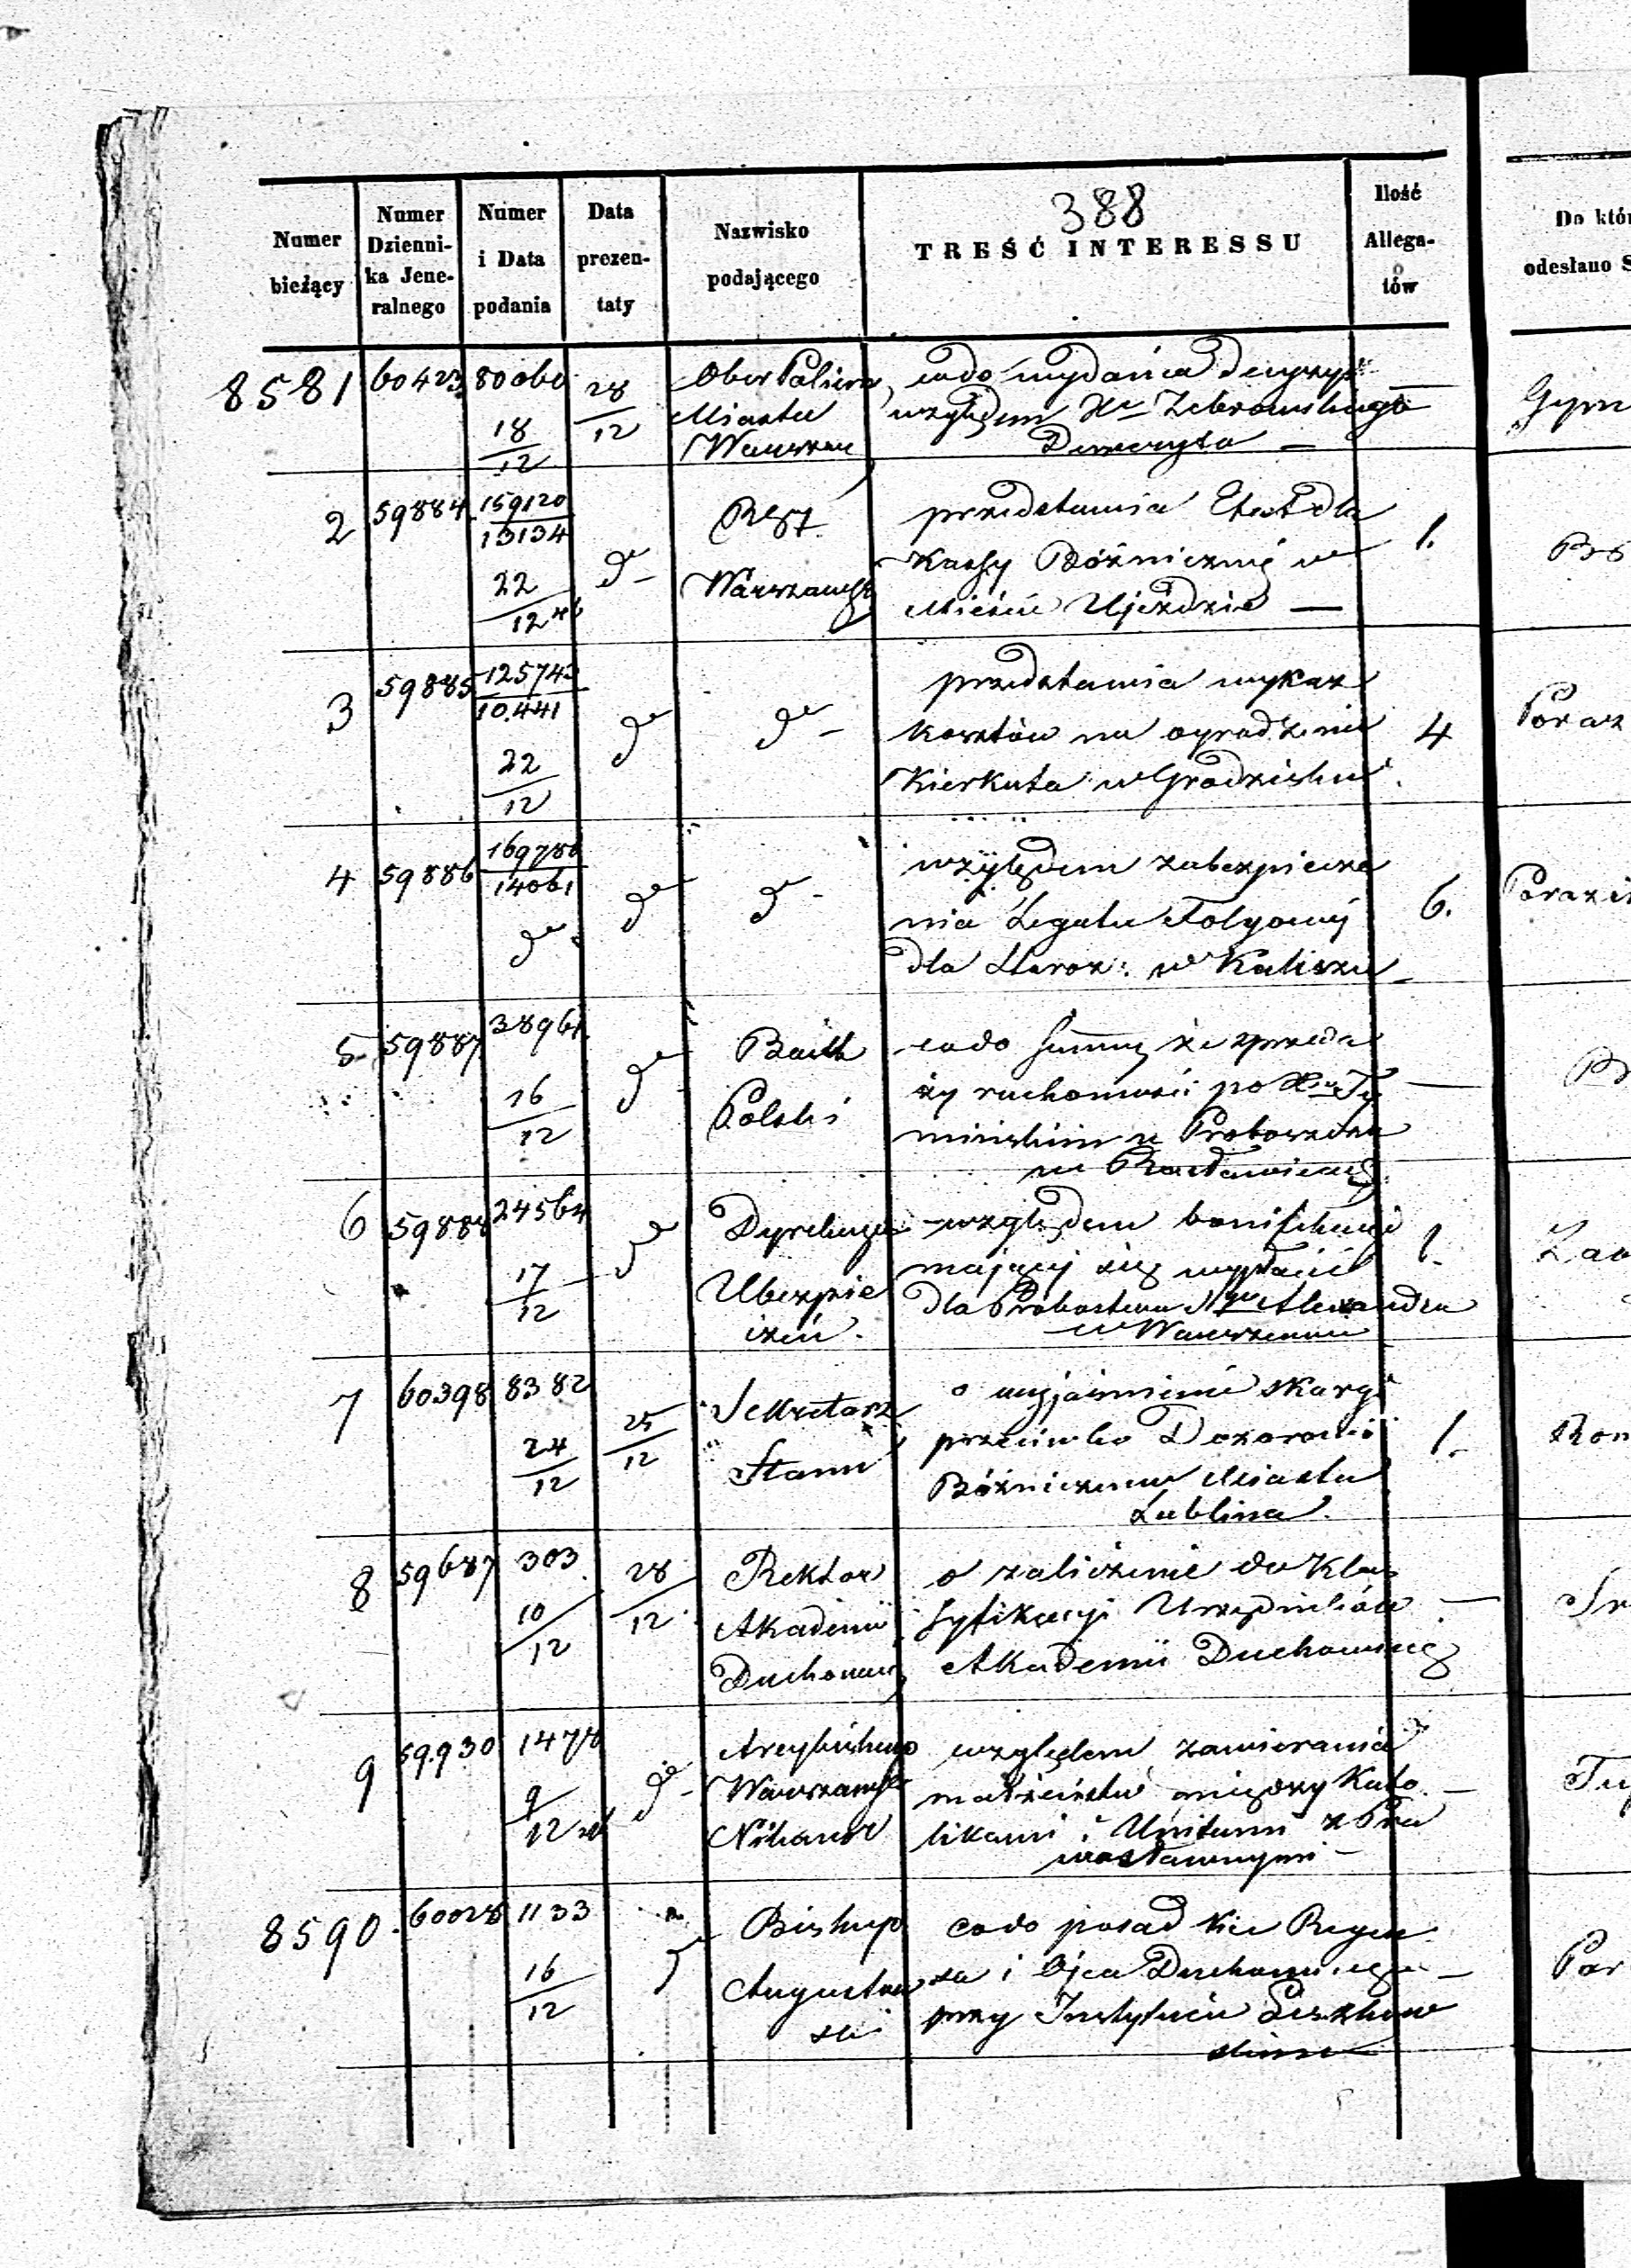 388
Numer bieżący
Numer Dzienni-ka Jene-ralnego
Numer i Data podania
Data prezen-taty
Nazwisko podającego
TREŚĆ INTERESSU
Ilość Allega-tów
Do któr
odesłano S
8581 60423 80060 18/12 28/12
Ober Policm
Miasta
Warszawy
codo wydania decyzyi
względem Xa Zebrowskiego
Demeryta —
2 59884 159120/13134 22/12 46 do
RGt
Warszawsk
1.
przedstawia Etat dla
Kassy Bóżnicznéj w
Mieście Ujeździe —
3 59885 125743/10.441 22/12 do do
4
przedstawia wykaz
kosztów na ogrodzenie
Kierkuta w Grodzisku
Poraz
4 59886 169786/14061 do do do
6.
względem zabezpiecze
nia Legatu
dla Staroz: w Kaliszu
5 59887 38961 16/12 do
Bank
Polski
codo Summy ze sprzeda
ży ruchomości po Xu Ty
mińskim z Probostwa
w Racławicach
6 59888 24564 17/12 do
Dyrekcya
Ubezpie
czeń.
1.
względem bonifikacyi
mającéj się wypłacić
dla Probostwa Sgo Alexandra
w Warszawie
7 60398 8382 24/12 25/12
Sekretarz
Stanu
1.
o wyjaśnienie skargi
przeciwko Dozorowi
Bóżniczemu Miasta
Lublina.
8 59687 303 10/12 28/12
Rektor
Akademii
Duchownéj
o zaliczenie do Klas
syfikacyi Urzędników
Akademii Duchownéj
9 59.930 1478 9/12 do
Arcybiskup
Warszawsk
względem zawierania
małżeństw między Kato
likami i Unitami z Pra
wosławnymi —
8590. 60028 1133 16/12 do
Biskup
Augustow
ski
codo posad Vice Regen
sa i Ojca Duchownego —
przy Instytucie
Por